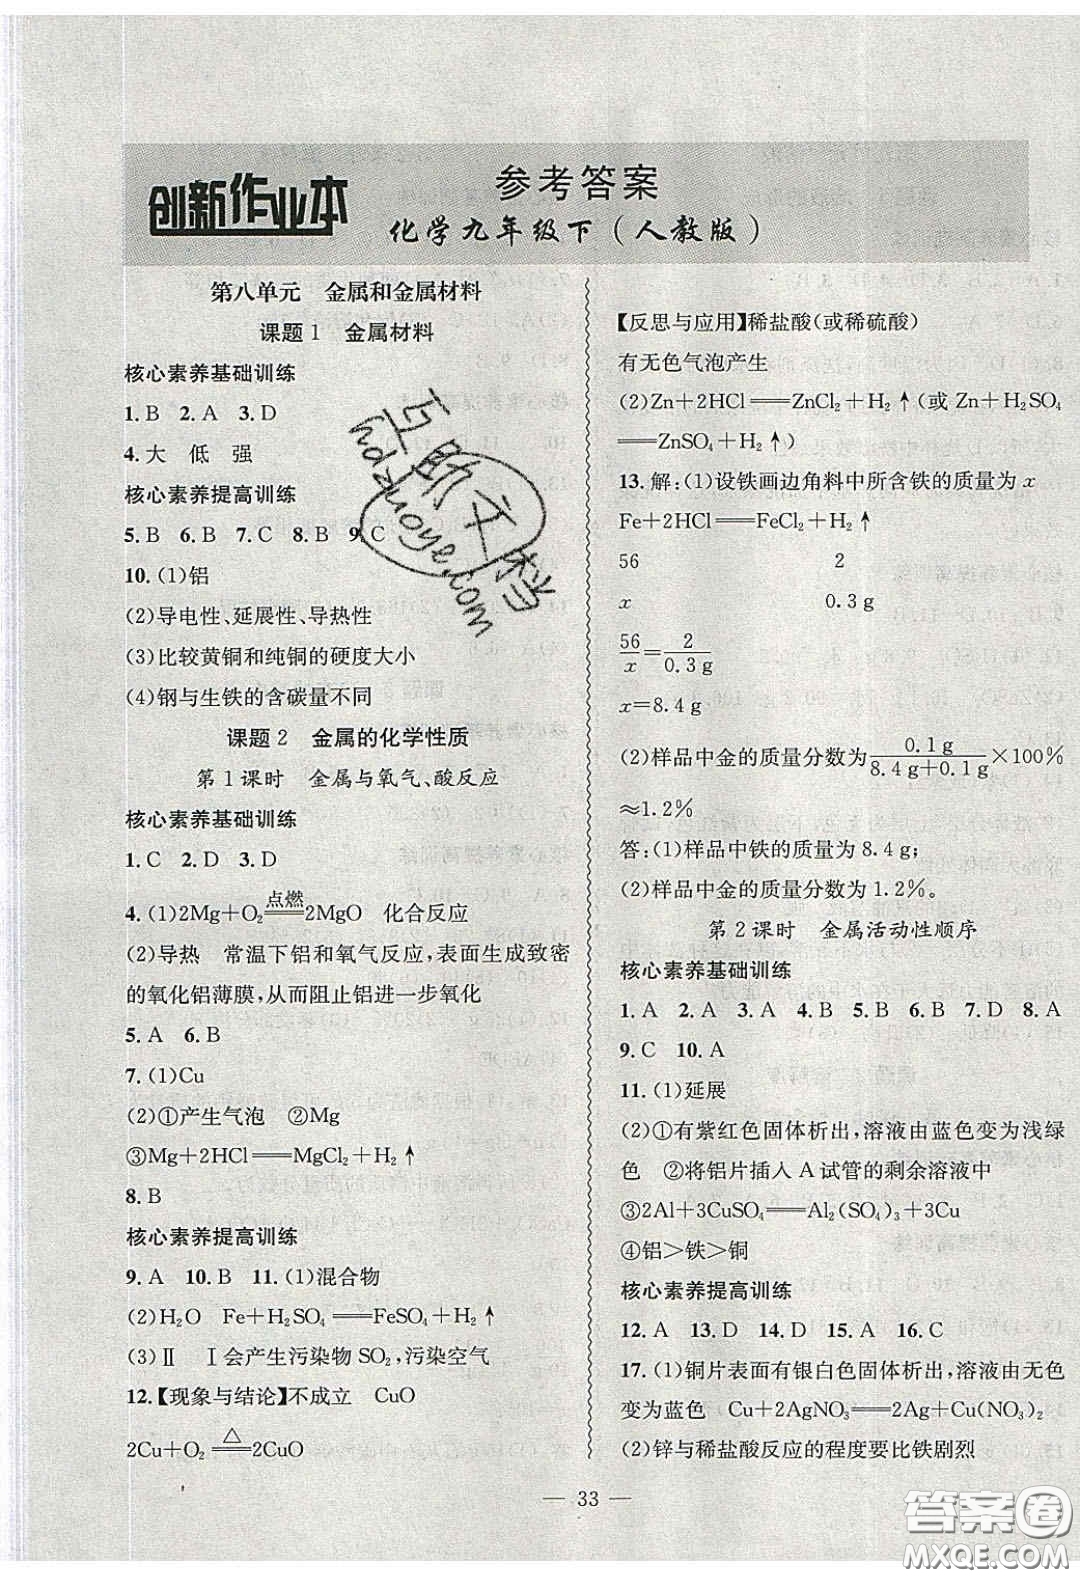 创新作业本
参考答案
化学九年级下(人教版)
第八单元 金属和金属材料
课题1 金属材料
核心素养基础训练
1.B 2.A 3.D
4.大 低 强
核心素养提高训练
5.B 6.B 7.C 8.B 9.C
10.(1)铝
(2)导电性、延展性、导热性
(3)比较黄铜和纯铜的硬度大小
(4)钢与生铁的含碳量不同
课题2 金属的化学性质
第1课时 金属与氧气、酸反应
核心素养基础训练
1.C 2.D 3.D
4.(1)2Mg+O₂=点燃=2MgO 化合反应
(2)导热 常温下铝和氧气反应,表面生成致密
的氧化铝薄膜,从而阻止铝进一步氧化
5.A 6.B
7.(1)Cu
(2)①产生气泡 ②Mg
③Mg+2HCl══MgCl₂+H₂↑
8.B
核心素养提高训练
9.A 10.B 11.(1)混合物
(2)H₂O Fe+H₂SO₄══FeSO₄+H₂↑
(3)Ⅱ Ⅰ会产生污染物SO₂,污染空气
12.【现象与结论】不成立 CuO
2Cu+O₂=△=2CuO
【反思与应用】稀盐酸(或稀硫酸)
有无色气泡产生
(2)Zn+2HCl══ZnCl₂+H₂↑(或Zn+H₂SO₄
══ZnSO₄+H₂↑)
13.解:(1)设铁画边角料中所含铁的质量为x
Fe+2HCl══FeCl₂+H₂↑
56 2
x 0.3 g
56/x=2/0.3 g
x=8.4 g
(2)样品中金的质量分数为0.1 g/8.4 g+0.1 g×100%
≈1.2%
答:(1)样品中铁的质量为8.4 g;
(2)样品中金的质量分数为1.2%。
第2课时 金属活动性顺序
核心素养基础训练
1.A 2.A 3.A 4.B 5.B 6.B 7.D 8.A
9.C 10.A
11.(1)延展
(2)①有紫红色固体析出,溶液由蓝色变为浅绿
色 ②将铝片插入A试管的剩余溶液中
③2Al+3CuSO₄══Al₂(SO₄)₃+3Cu
④铝>铁>铜
核心素养提高训练
12.A 13.D 14.D 15.A 16.C
17.(1)铜片表面有银白色固体析出,溶液由无色
变为蓝色 Cu+2AgNO₃══2Ag+Cu(NO₃)₂
(2)锌与稀盐酸反应的程度要比铁剧烈
— 33 —
互助文档
hdzuoye.com
答案圈
MXQE.COM